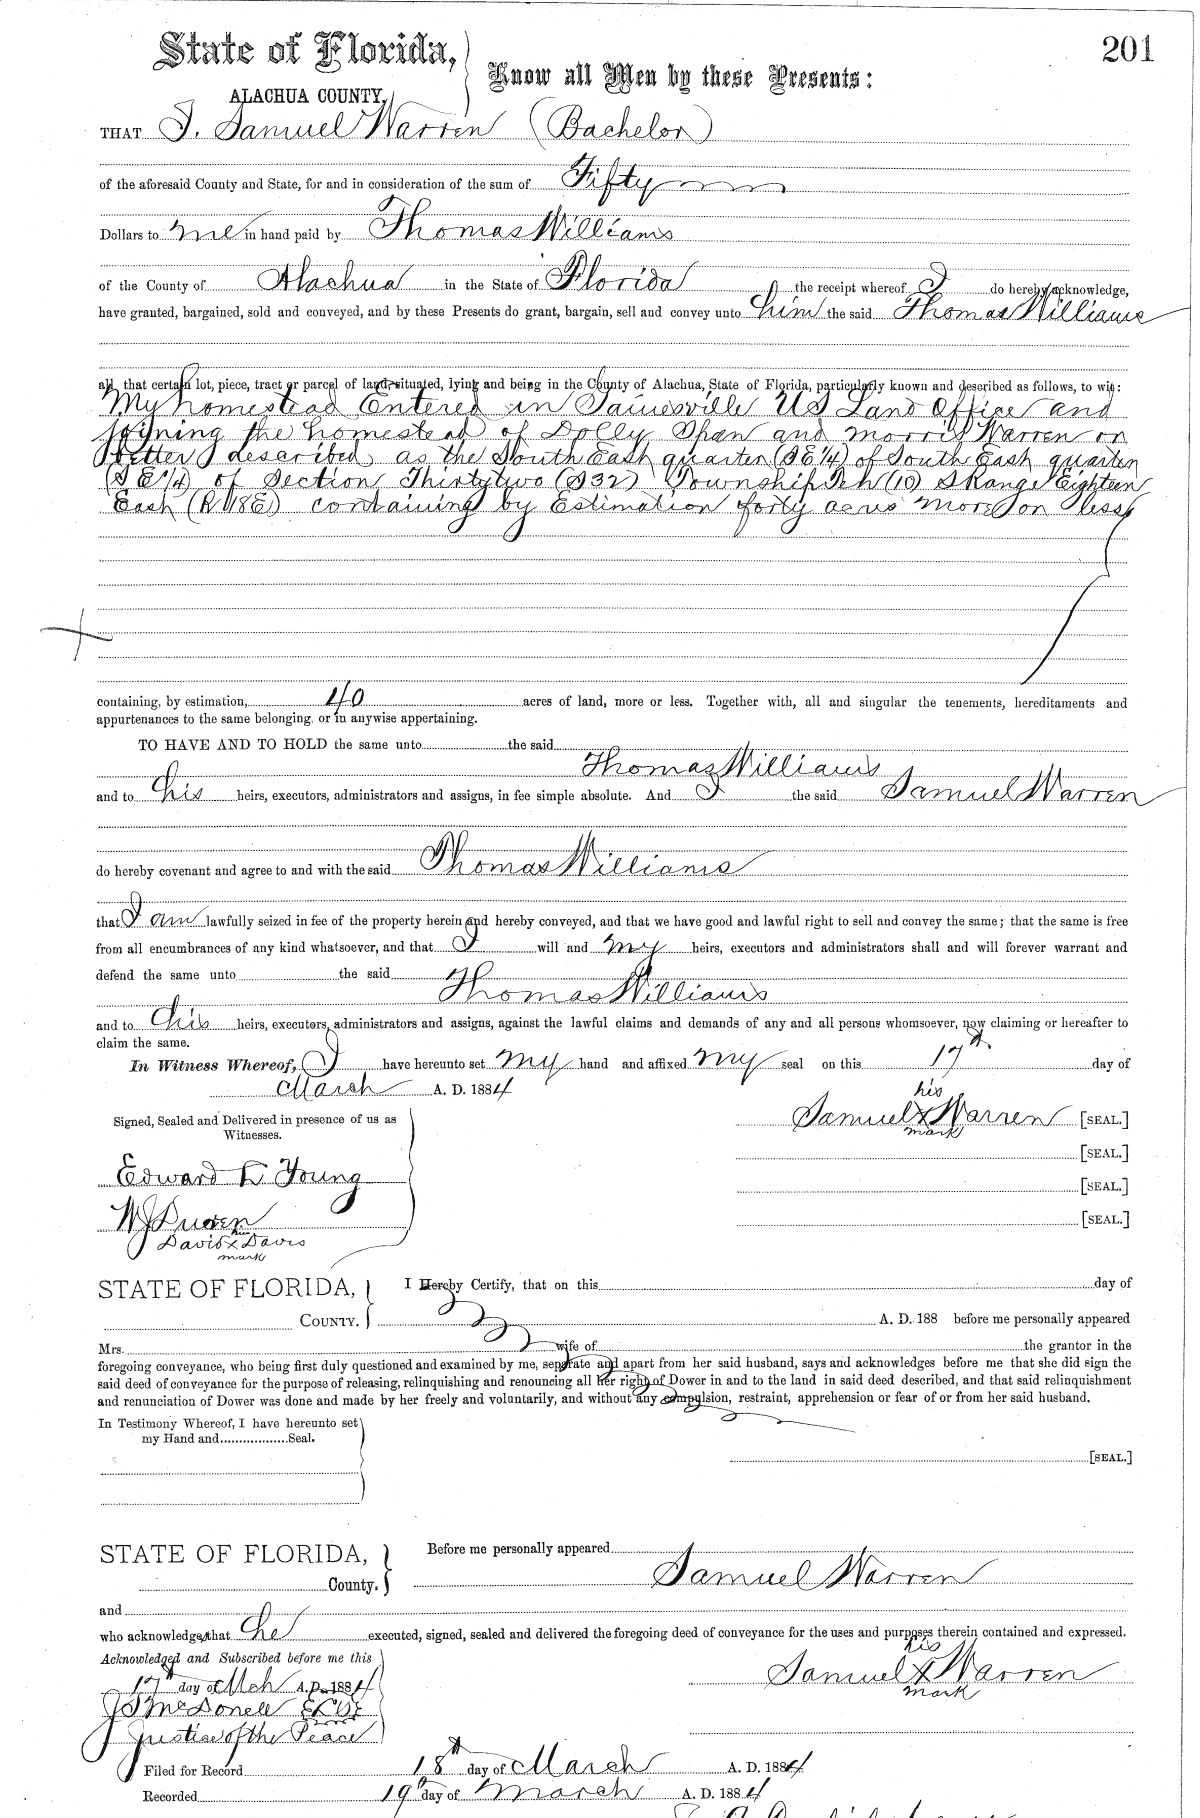 201
State of Florida,
ALACHUA COUNTY.
Know all Men by these Presents:
THAT I. Samuel Warren (Bachelor)
of the aforesaid County and State, for and in consideration of the sum of Fifty
Dollars to me in hand paid by Thomas Williams
of the County of Alachua in the State of Florida the receipt whereof I do hereby acknowledge,
have granted, bargained, sold and conveyed, and by these Presents do grant, bargain, sell and convey unto him the said Thomas Williams
all that certain lot, piece, tract or parcel of land, situated, lying and being in the County of Alachua, State of Florida, particularly known and described as follows, to wit:
My homestead Entered in Gainesville US Land Office and
joining the homestead of Dolly Span and Morris Warren or
better described as the South East quarter (SE¼) of South East quarter
(SE¼) of Section Thirtytwo (S32) Township Ten (10) S Range Eighteen
East (R18E) containing by Estimation forty acres more or less
containing, by estimation, 40 acres of land, more or less. Together with, all and singular the tenements, hereditaments and
appurtenances to the same belonging or in anywise appertaining.
TO HAVE AND TO HOLD the same unto the said
Thomas Williams
and to his heirs, executors, administrators and assigns, in fee simple absolute. And I the said Samuel Warren
do hereby covenant and agree to and with the said Thomas Williams
that I am lawfully seized in fee of the property herein and hereby conveyed, and that we have good and lawful right to sell and convey the same; that the same is free
from all encumbrances of any kind whatsoever, and that I will and my heirs, executors and administrators shall and will forever warrant and
defend the same unto the said
Thomas Williams
and to his heirs, executors, administrators and assigns, against the lawful claims and demands of any and all persons whomsoever, now claiming or hereafter to
claim the same.
In Witness Whereof, I have hereunto set my hand and affixed my seal on this 17th day of
March A. D. 1884
his
Signed, Sealed and Delivered in presence of us as
Witnesses.
Samuel X Warren [SEAL.]
mark
[SEAL.]
Edward L Young
[SEAL.]
[SEAL.]
his
David X Davis
mark
STATE OF FLORIDA,
COUNTY.
I Hereby Certify, that on this day of
A. D. 188 before me personally appeared
Mrs. wife of the grantor in the
foregoing conveyance, who being first duly questioned and examined by me, separate and apart from her said husband, says and acknowledges before me that she did sign the
said deed of conveyance for the purpose of releasing, relinquishing and renouncing all her right of Dower in and to the land in said deed described, and that said relinquishment
and renunciation of Dower was done and made by her freely and voluntarily, and without any compulsion, restraint, apprehension or fear of or from her said husband.
In Testimony Whereof, I have hereunto set
my Hand and Seal.
[SEAL.]
STATE OF FLORIDA,
County.
Before me personally appeared
Samuel Warren
and
who acknowledge that he executed, signed, sealed and delivered the foregoing deed of conveyance for the uses and purposes therein contained and expressed.
Acknowledged and Subscribed before me this
17th day of Mch A. D. 1884
his
Samuel X Warren
mark
J McDonell
Justice of the Peace
Filed for Record 18th day of March A. D. 1884
Recorded 19th day of March A. D. 1884